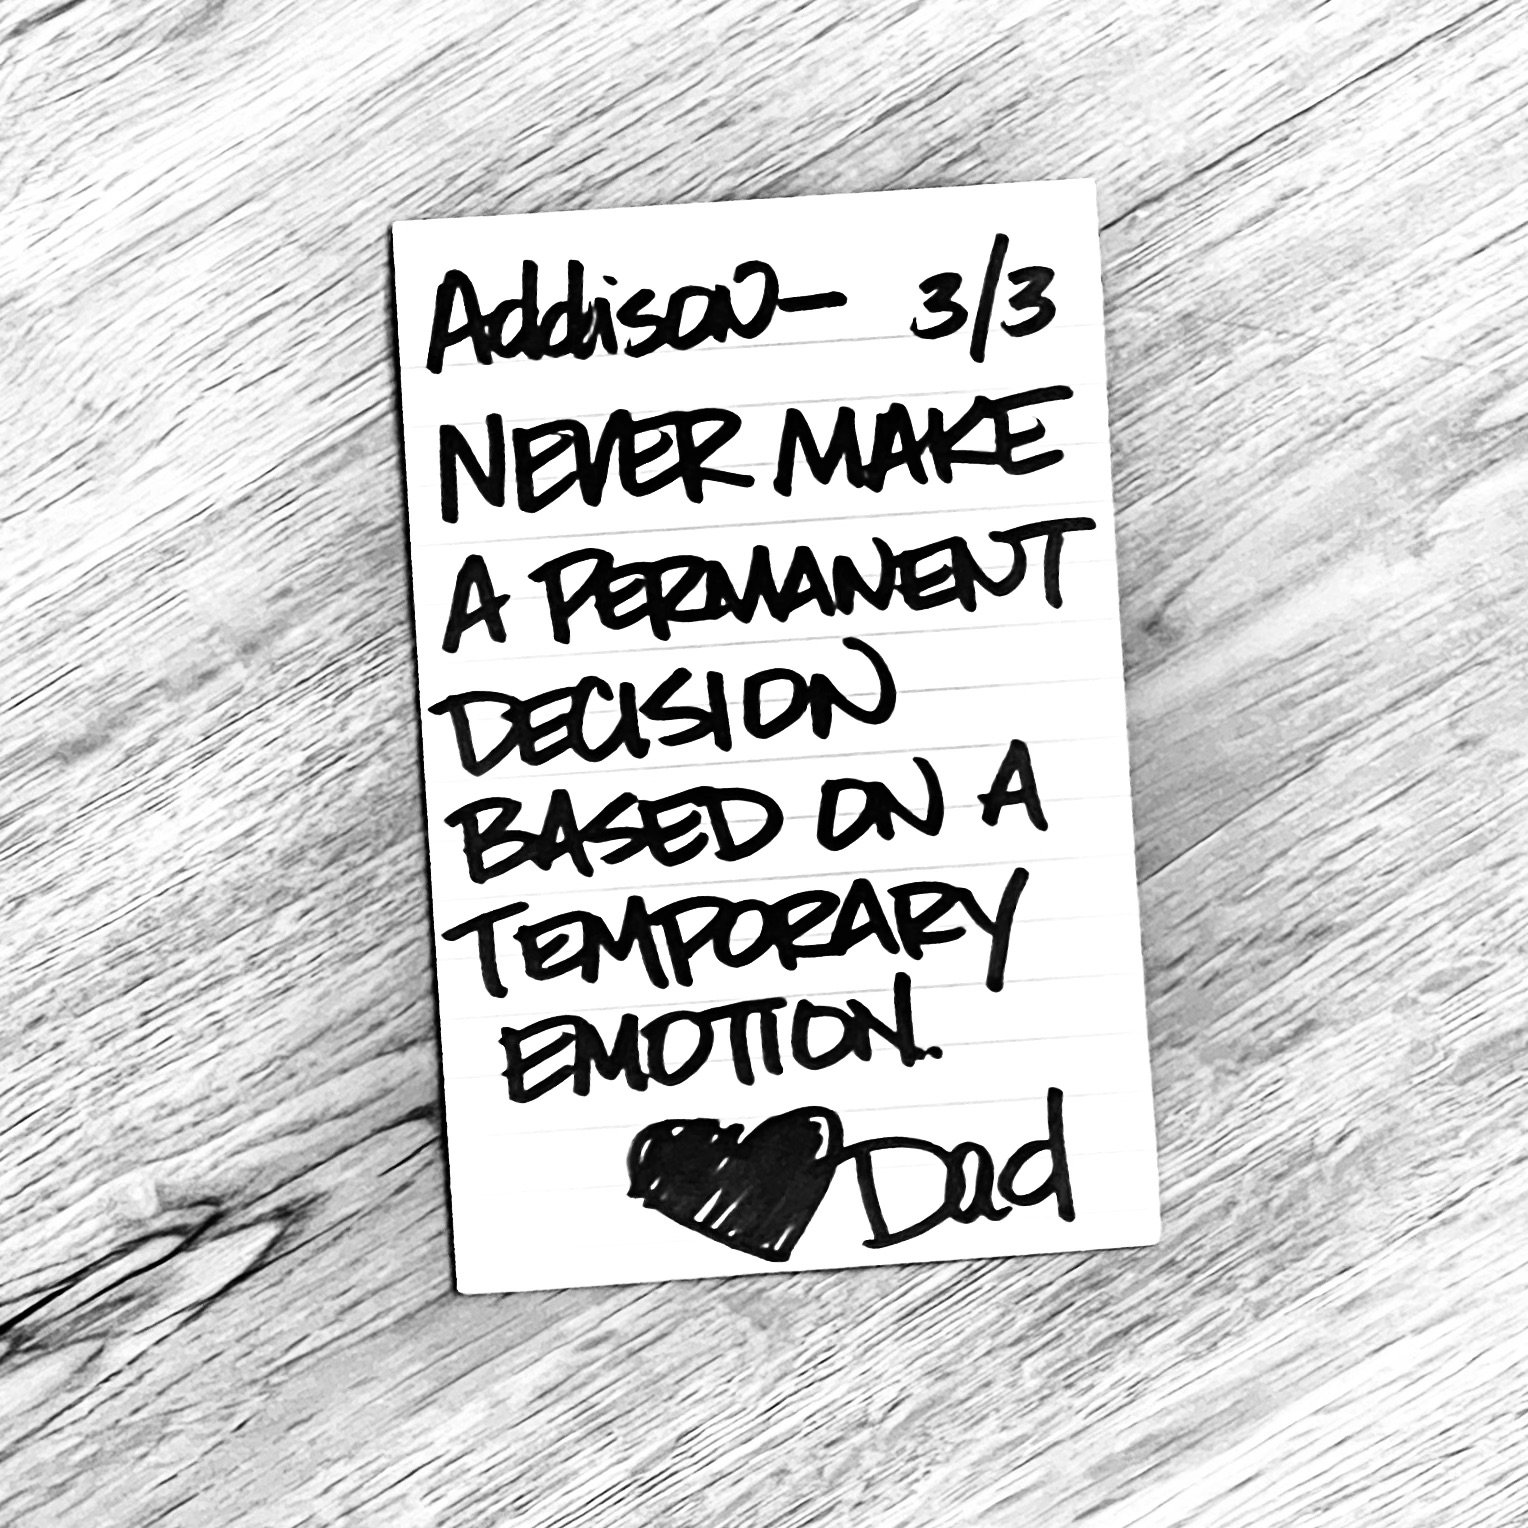 Addison— 3/3
NEVER MAKE
A PERMANENT
DECISION
BASED ON A
TEMPORARY
EMOTION.
Dad